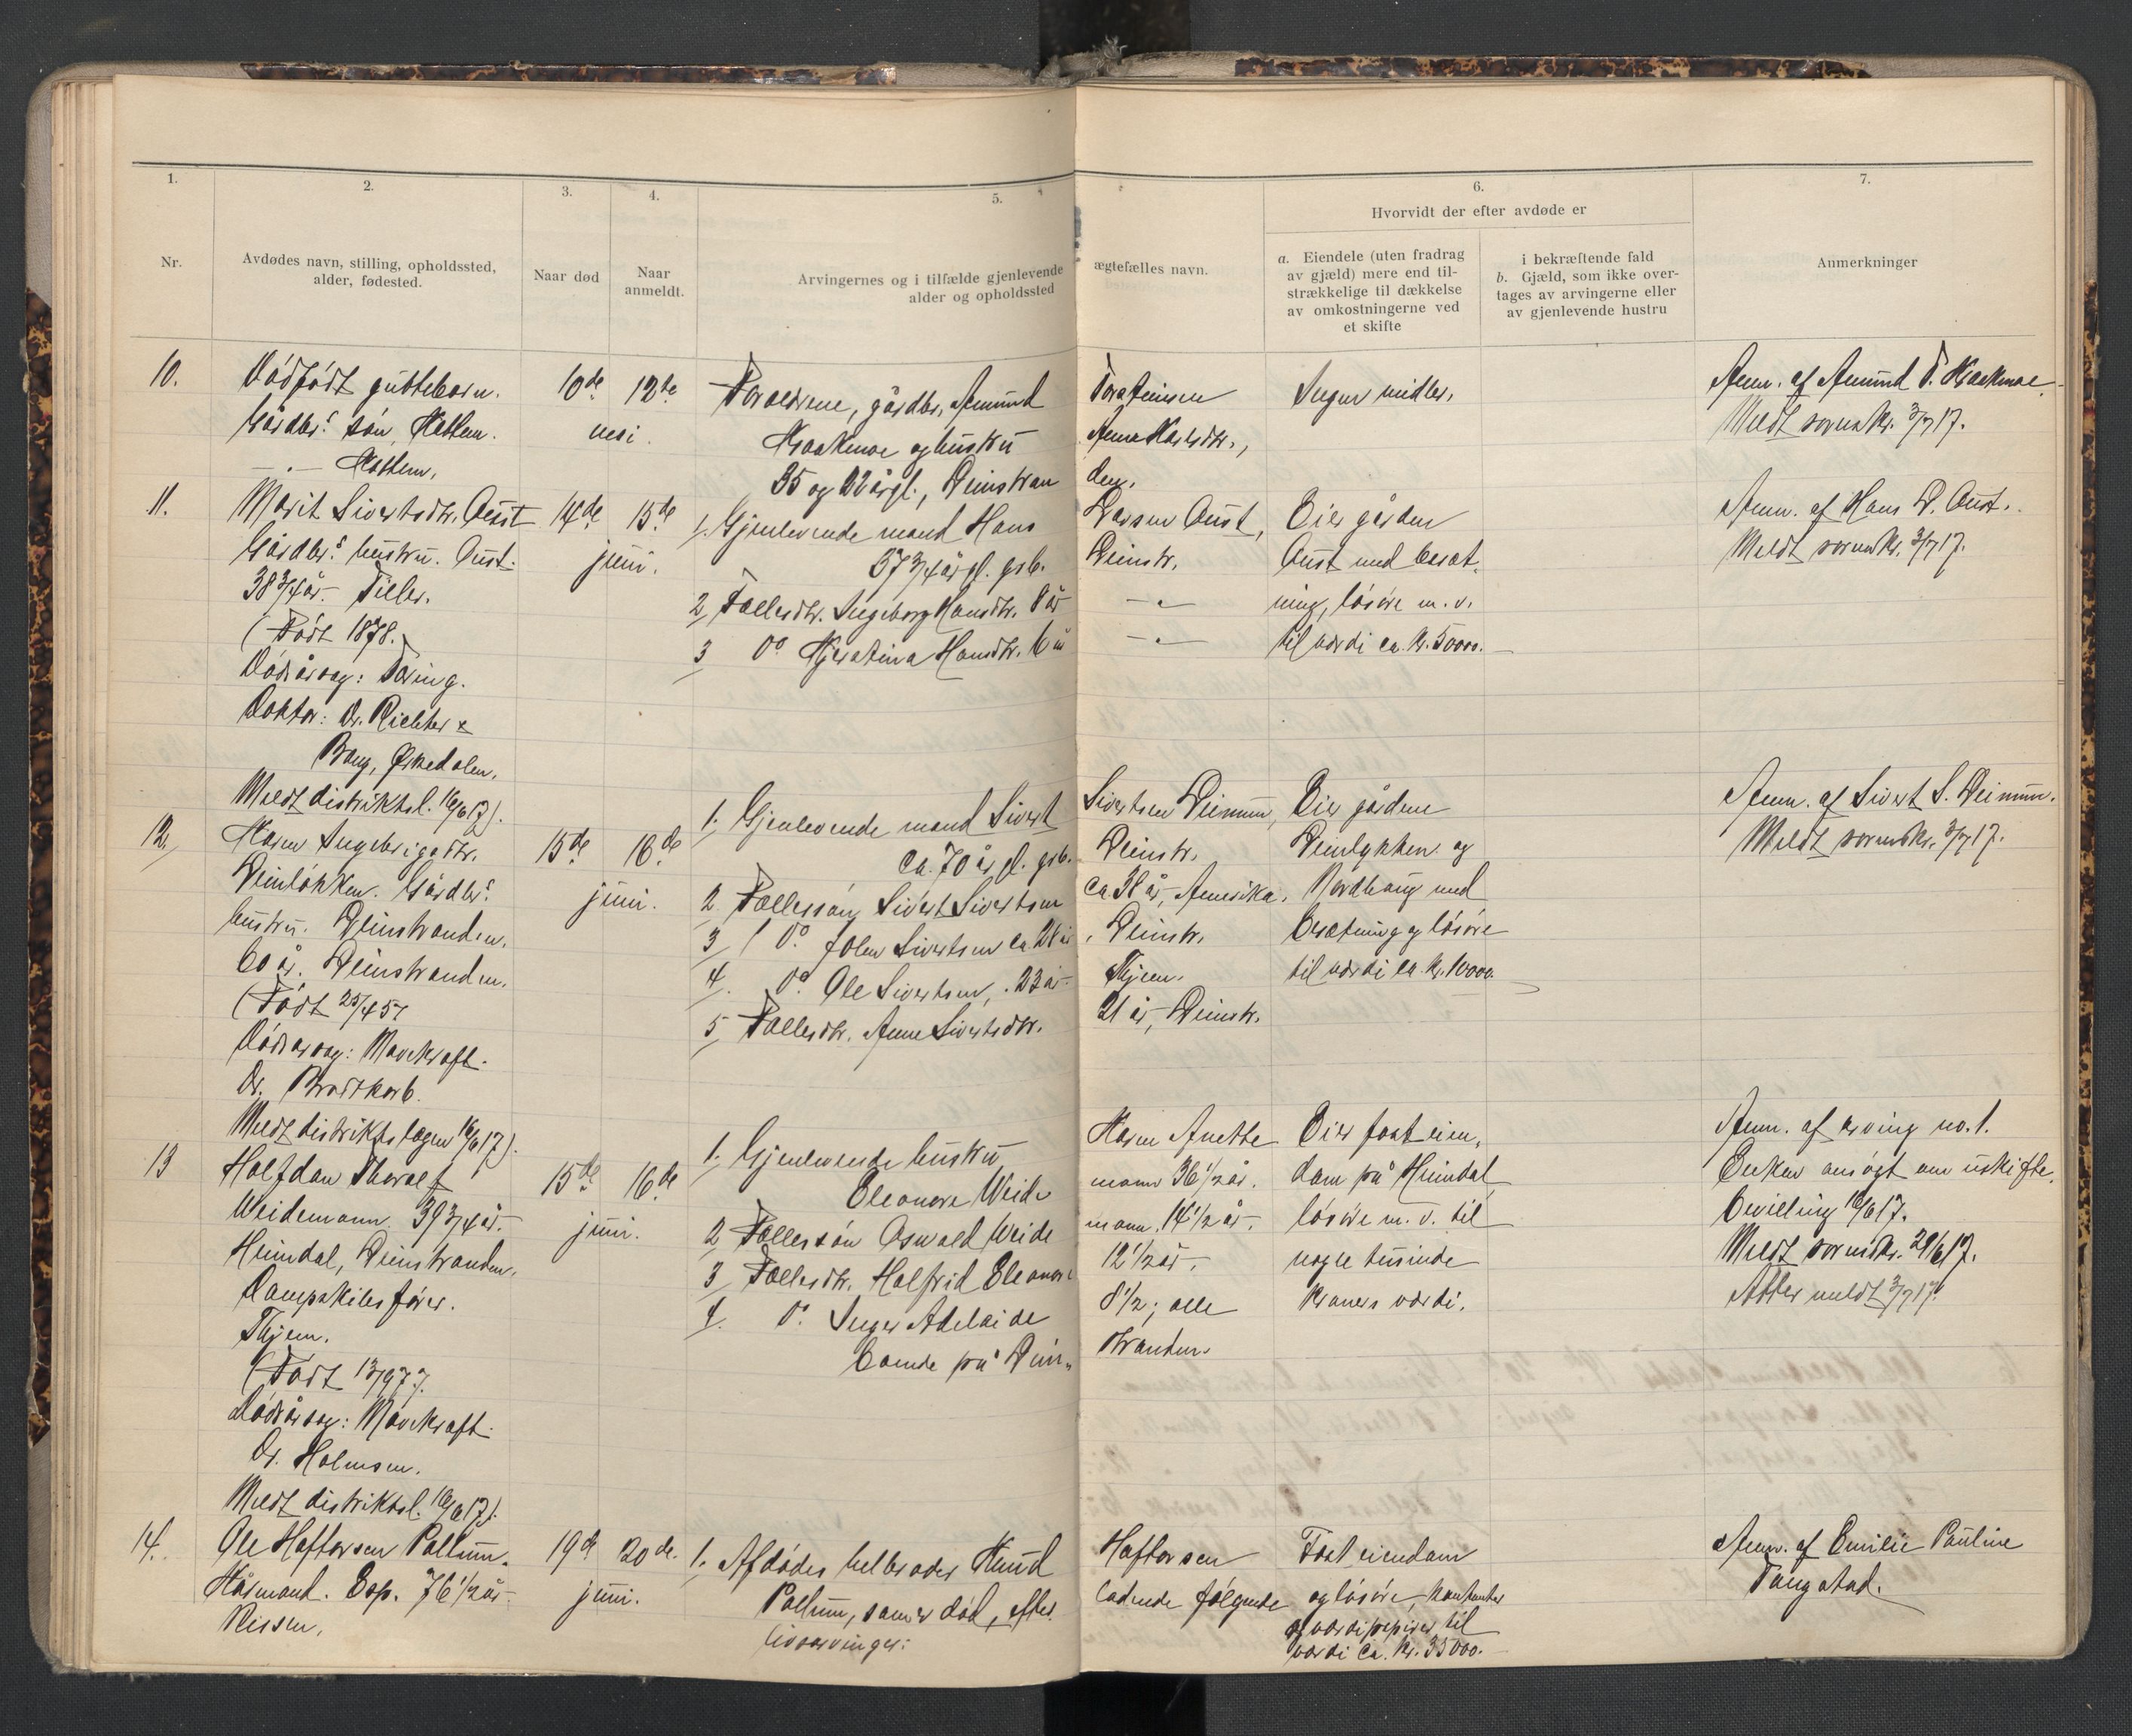 1.
2.
3.
4.
5.
6.
7.
Nr.
Avdødes navn, stilling, opholdssted,
alder, fødested.
Naar død
Naar
anmeldt.
Arvingernes og i tilfælde gjenlevende ægtefælles navn.
alder og opholdssted
Hvorvidt der efter avdøde er
a. Eiendele (uten fradrag
av gjæld) mere end til-
strækkelige til dækkelse
av omkostningerne ved
et skifte
i bekræftende fald
b. Gjæld, som ikke over-
tages av arvingerne eller
av gjenlevende hustru
Anmerkninger
10.
Dødfødt guttebarn.
Gårdbrs søn,
10de 12te
Forældrene, gårdbr. Amund Torsteinsen
og hustru Anna
35 og 32 årgl., Leinstran den.
Ingen midler.
Anm. af Amund T.
Meldt sorenskr. 3/7 17.
11.
Marit Sivertsdtr. Aust
Gårdbrs hustru. Aust.
38 3/4 år. Tiller.
(Født 1878.
Dødsårsag: Tæring.
Doktor: Dr. Richter &
Borg, Ørkedalen.
Meldt distriktsl. 16/6 17).
14de 15de
juni.
1. Gjenlevende mand Hans Larsen Aust,
37 3/4 år gl. grb. Leinstr.
2, Fællesdtr. Ingeborg Hansdtr. 8 år — " —
3 Do Kjerstina Hansdtr. 6 år — " —
Eier gården
Aust med besæt-
ning, løsøre m. v.
til værdi ca. kr. 5000.
Anm. af Hans L. Aust.
Meldt sorenskr. 3/7 17.
12,
Karen Ingebrigtsdtr.
Leinløkken. Gårdbrs
hustru. Leinstranden.
60 år. Leinstranden.
(Født 25/4 57
Dødsårsag: Mavekræft.
Dr. Brodtkorb.
Meldt distriktslægen 16/6 17).
15de 16de
juni.
1. Gjenlevende mand Sivert Sivertsen Leinum,
Ca. 70 år gl. grb. Leinstr.
2 Fællessøn Sivert Sivertsen ca 38 år, Amerika.
3 Do John Sivertsen ca 28 år, Leinstr.
4. Do Ole Sivertsen, 23 år Thjem.
5 Fællesdtr. Anne Sivertsdtr. 21 år, Leinstr.
Eier gårdene
Leinlykken og
Nordhaug med
besætning og løsøre
til værdi ca. kr. 10000.
Anm. af Sivert S. Leinum.
Meldt sorenskr. 3/7 17.
13
Halfdan Thoralf
Weidemann. 39 3/4 år.
Heimdal, Leinstranden.
Dampskibsfører.
Thjem.
(Født 13/9 77.
Dødsårsag: Mavekræft.
Dr. Holmsen.
Meldt distriktsl. 16/6 17).
15de 16de
juni.
1. Gjenlevende hustru Karen Anette
Eleonora Weide mann 36 1/2 år.
2 Fællessøn Oswald Weide mann. 14 1/2 år.
3 Fællesdtr. Halfrid Eleonore 12 1/2 år.
4. Do Inger Adelaide 8 1/2; alle
boende på Lein- stranden.
Eier fast eien-
dom på Heimdal,
løsøre m. v. til
nogle tusinde
kroners værdi.
Anm. af arving no. 1.
Enken ansøgt om uskifte-
bevilling 16/6 17.
Meldt sorenskr. 29/6 17.
Atter meldt 3/7 17.
14.
Ole Haftorsen Pallum.
Kårmand. Esp. 76 1/2 år.
Rissen.
19de 20de.
juni.
1. Afdødes helbroder Knud Haftorsen
Pallum, som er død, efter ladende følgende
livsarvinger:
Fast eiendom
og løsøre, kontanter
og værdipapirer til
værdi ca. kr. 33000.
Anm. af Emilie Pauline
Tangstad.